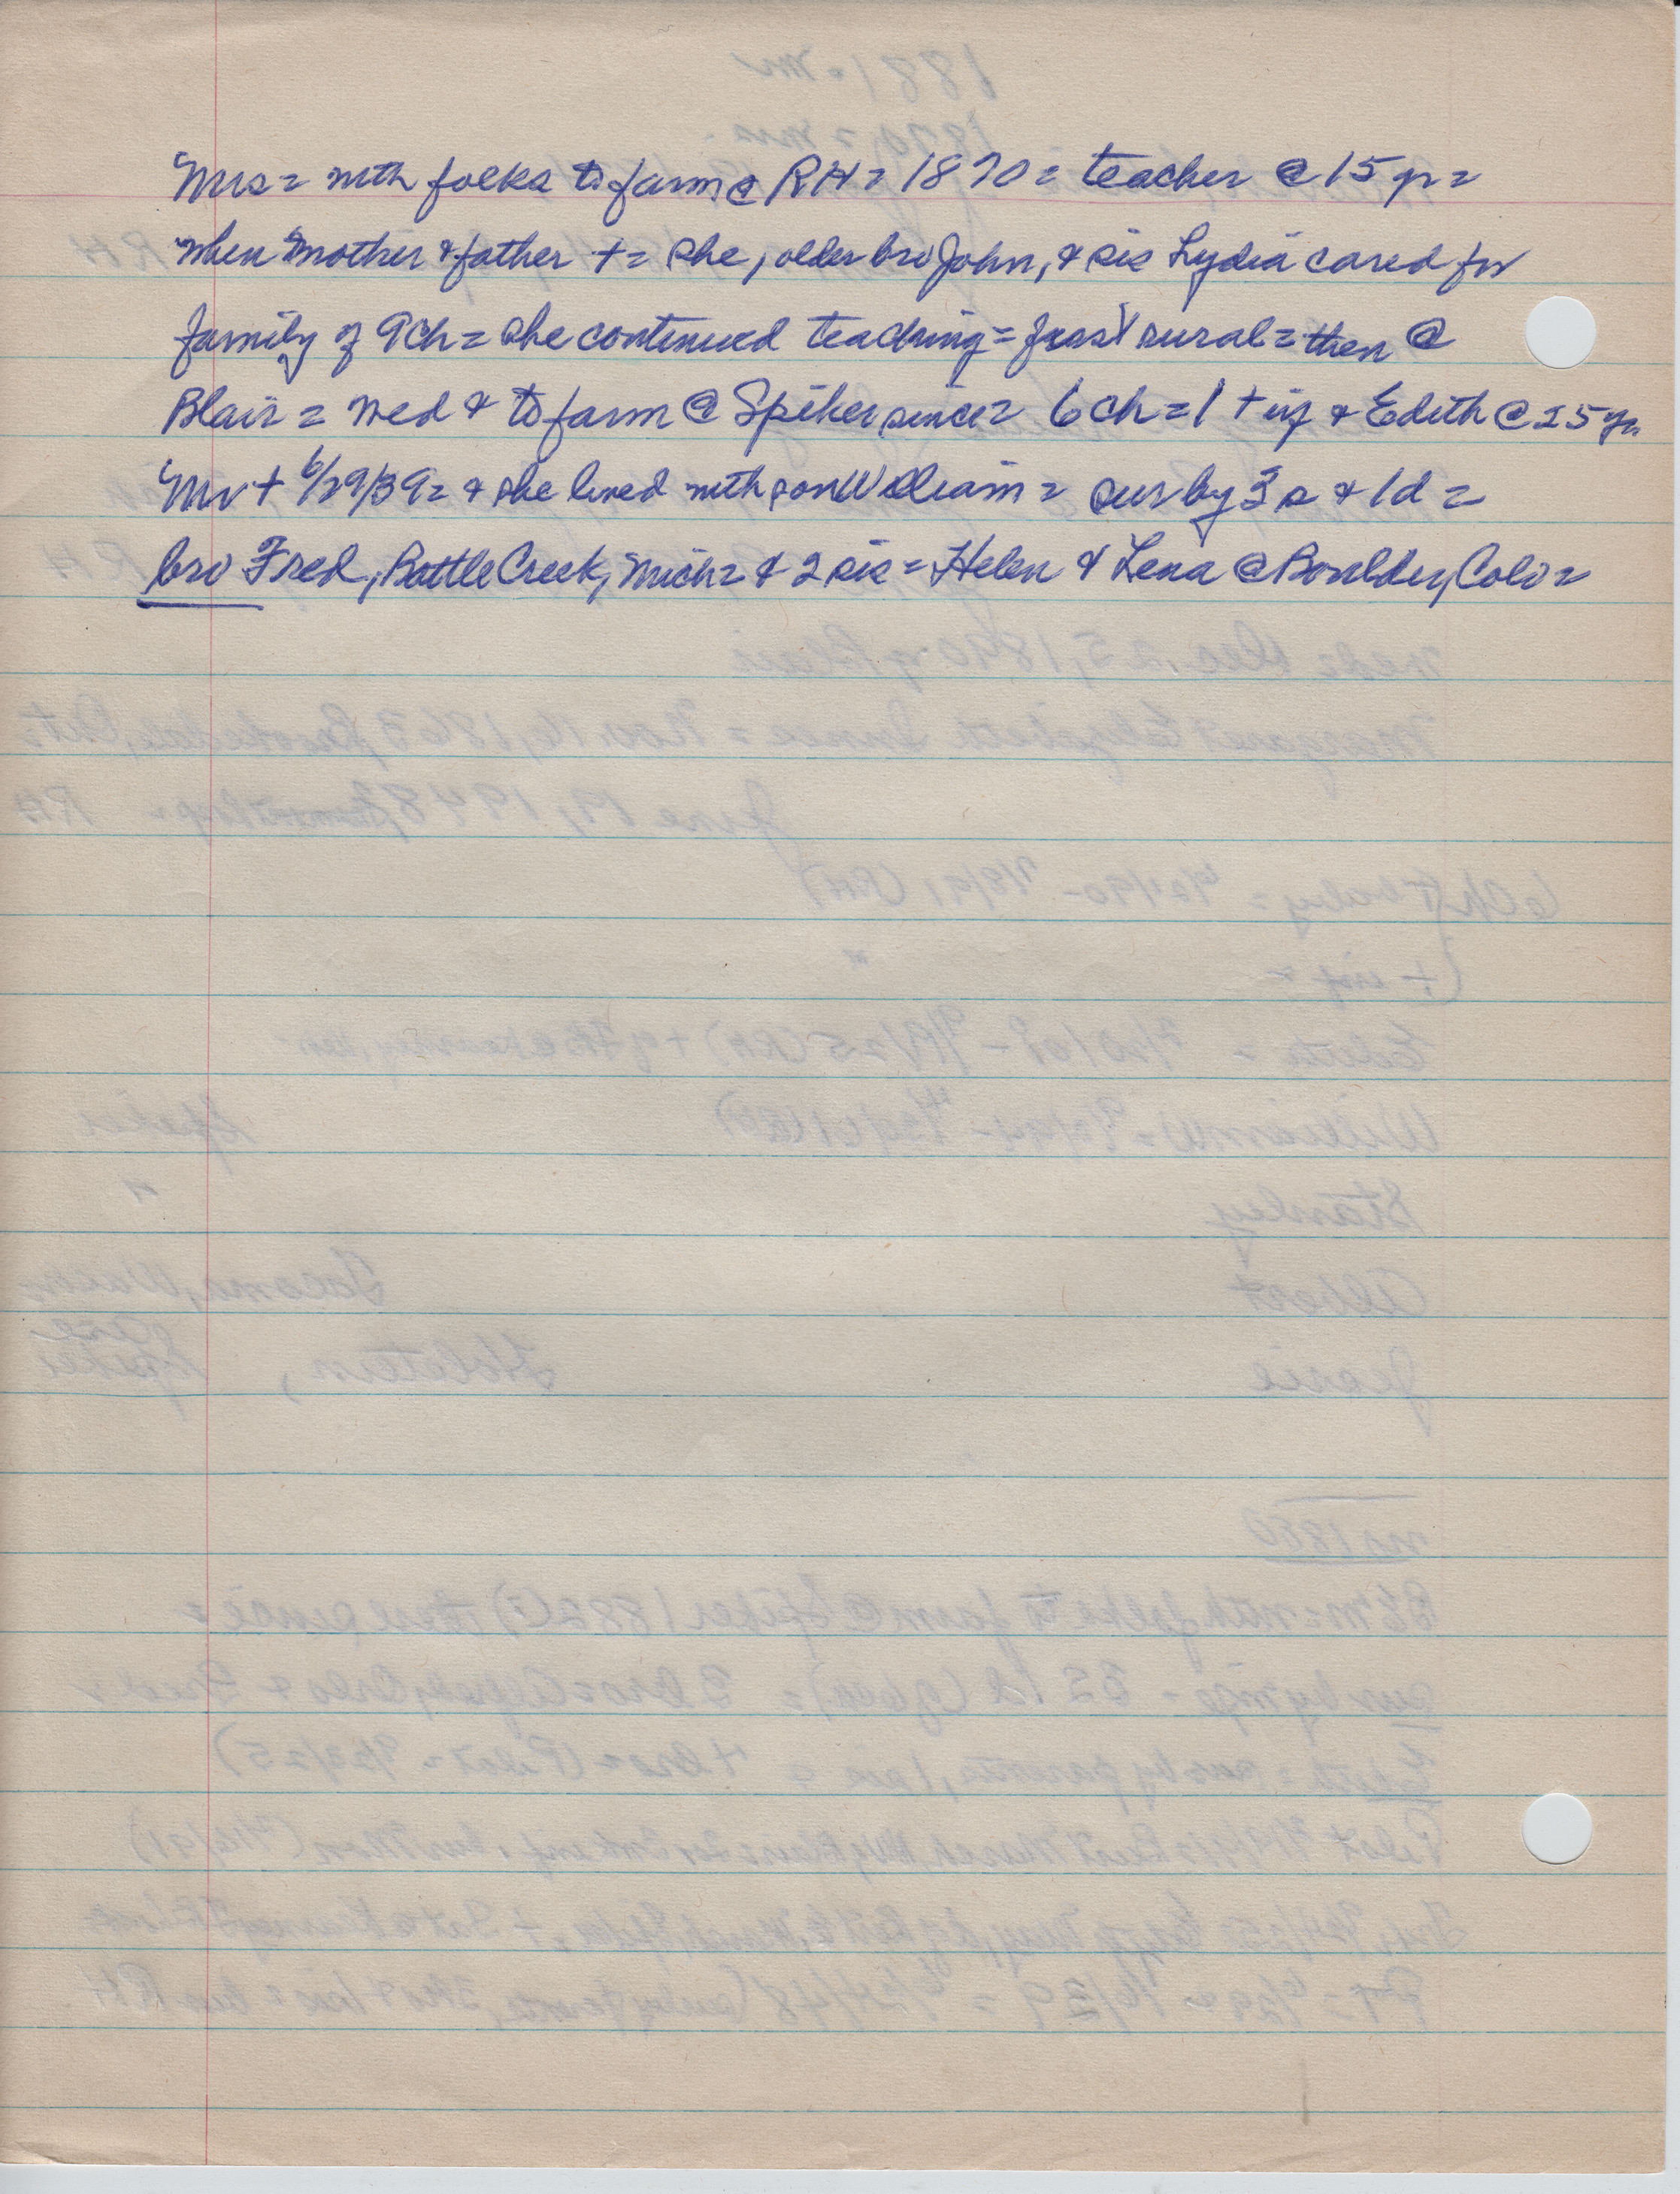 Mrs = with folks to farm @ RH = 1870 = teacher @ 15 yr =
when mother & father += she, older bro John, & sis Lydia cared for
family of 9ch = she continued teaching = first rural = then @
Blair = wed & to farm @ Spiker since = 6ch = 1 + inf & Edith @ 25 yr
Mr + 6/29/39 = & she lived with son William = sur by 3 s & 1d =
bro Fred, Battle Creek, Mich = & 2 sis = Helen & Lena @ Boulder, Colo =